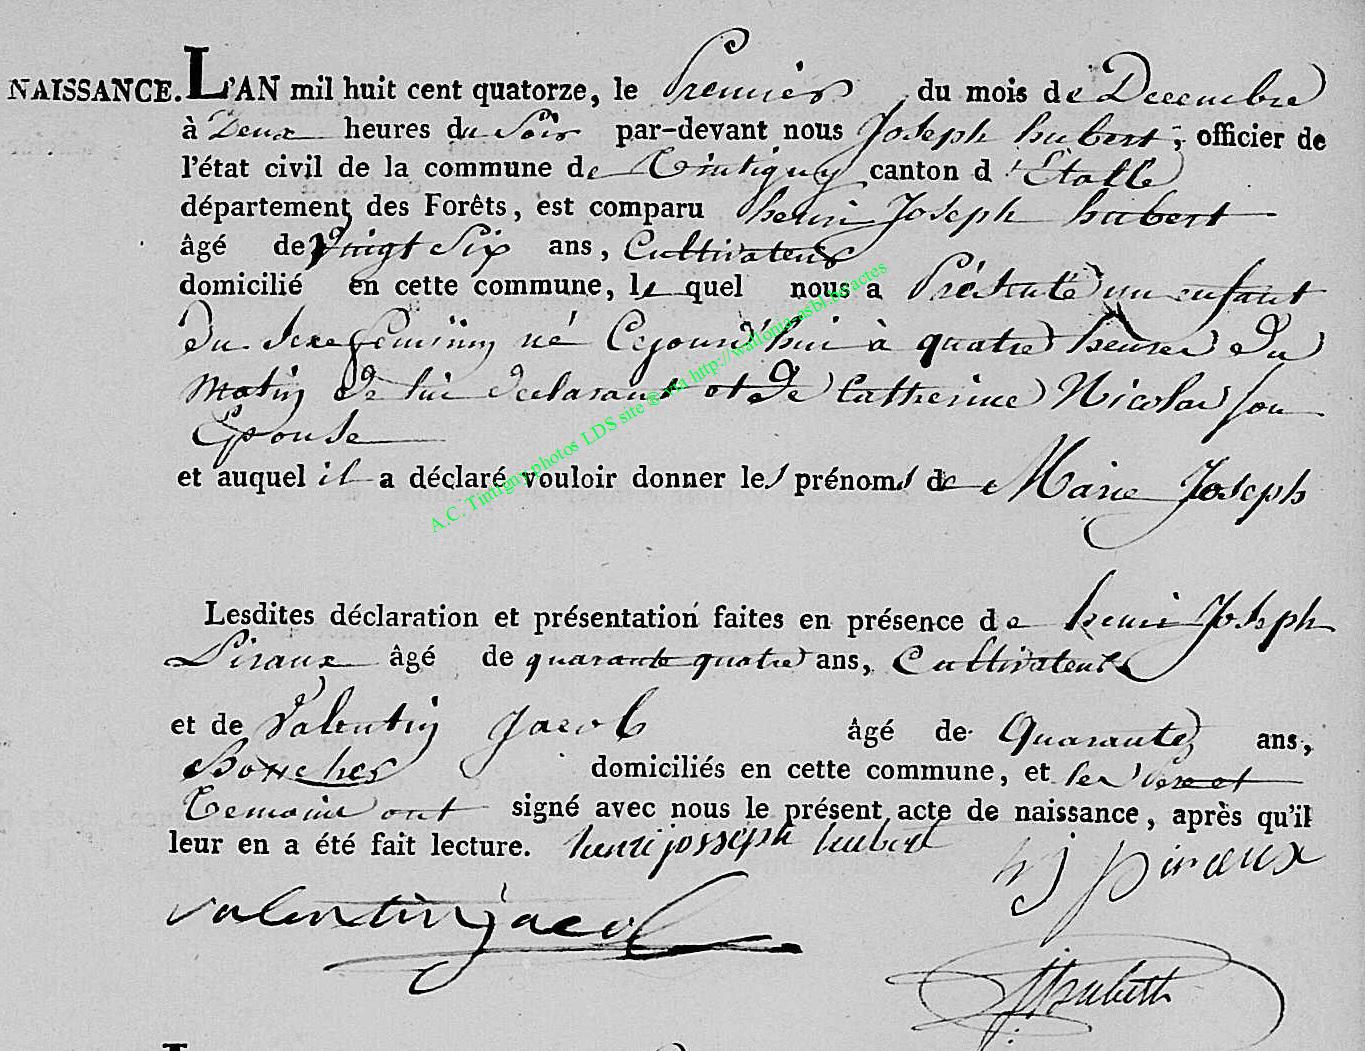 NAISSANCE. L'AN mil huit cent quatorze, le Premier du mois de Decembre
à Deux heures du Soir par-devant nous Joseph hubert, officier de
l'état civil de la commune de Tintigny canton d'Etalle
département des Forêts, est comparu henri Joseph hubert
âgé de vingt Six ans, Cultivateur
domicilié en cette commune, le quel nous a Présenté un enfant
du Sexe féminin né Cejourd'hui à quatre heures du
matin de lui declarant et de Catherine Nicolas son
Epouse
et auquel il a déclaré vouloir donner les prénoms de Marie Joseph
A.C. Tintigny photos LDS site via http://wallonia-asbl.be/actes
Lesdites déclaration et présentation faites en présence de henri Joseph
Piraux âgé de quarante quatre ans, Cultivateur
et de Valentin Jacob âgé de Quarante ans,
domiciliés en cette commune, et les
temoins ont signé avec nous le présent acte de naissance, après qu'il
leur en a été fait lecture. henri josseph hubert
hj piraux
valentin jacob